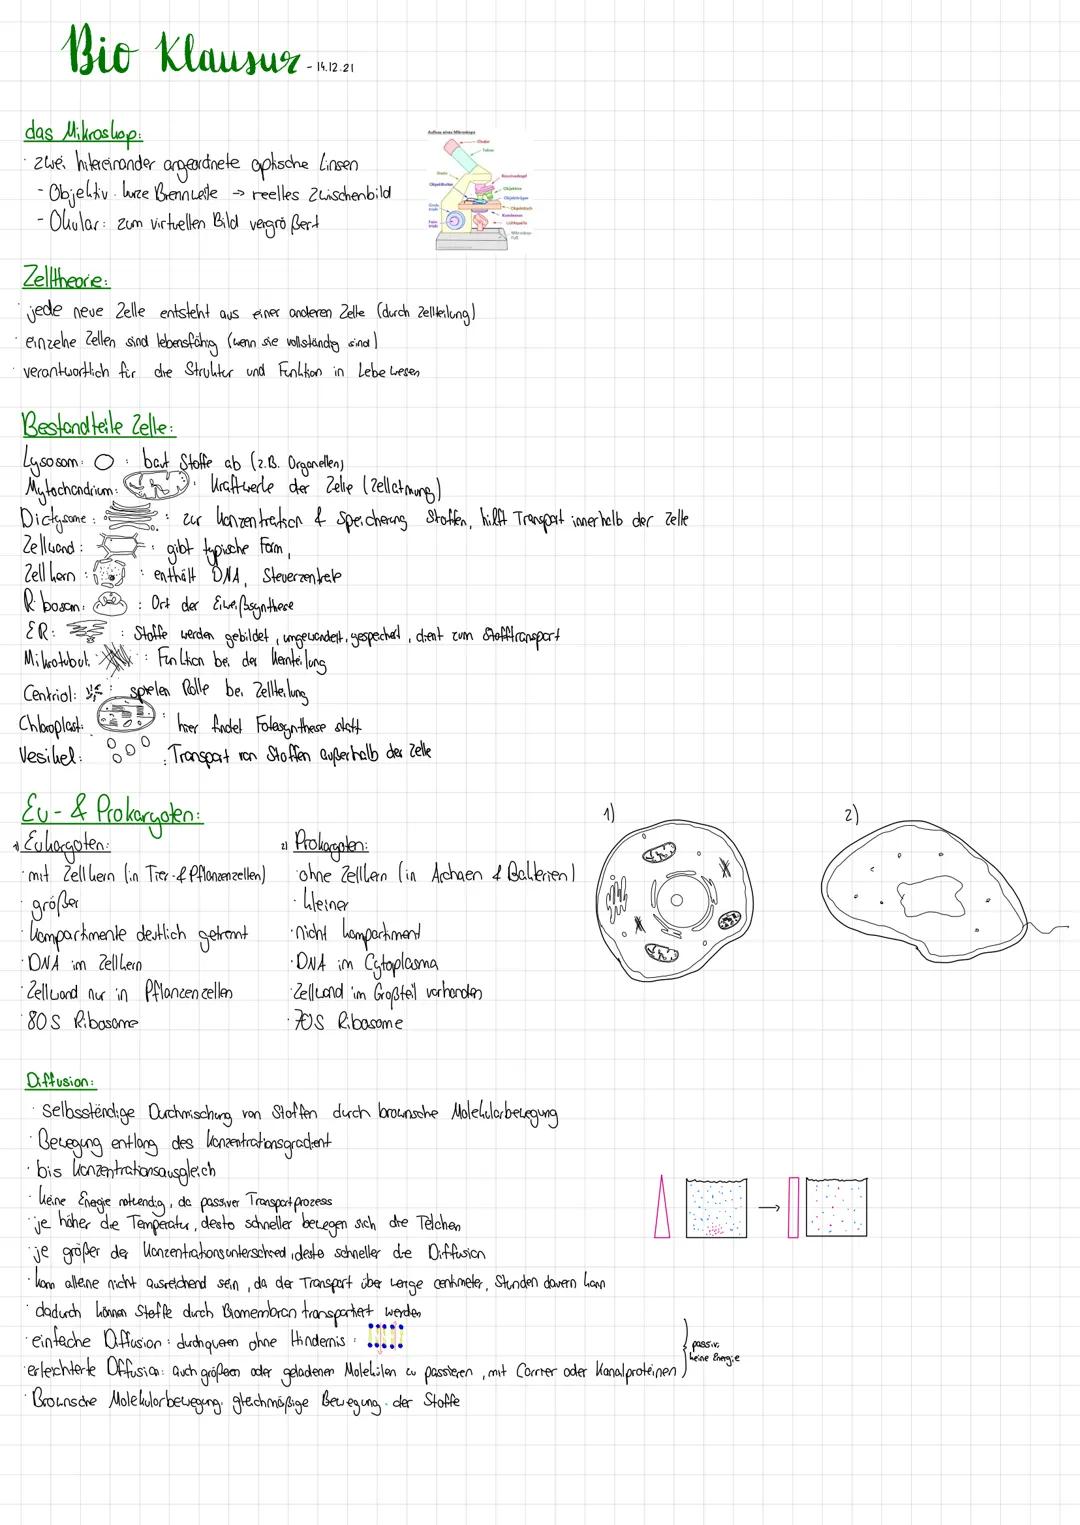 Bio Klausur - 14.12.21
das Mikroskop:
· zwei hitereinander angeordnete optische Linsen
- Objektiv: kurze Brennweite → reelles Zwischenbild
- Okular: zum virtuellen Bild vergrößert
Aufbau eines Mikroskops
Okular
Tubus
Stativ
Revolverkopf
Objektive
Objektträger
Objekttisch
Kondensor
Lichtquelle
Zelltheorie:
· jede neue Zelle entsteht aus einer anderen Zelle (durch Zellteilung)
· einzelne Zellen sind lebensfähig (wenn sie vollständig sind)
· verantwortlich für die Struktur und Funktion in Lebewesen
Bestandteile Zelle:
Lysosom: : baut Stoffe ab (z.B. Organellen)
Mytochondrium: : Kraftwerke der Zelle (Zellatmung)
Dictysome: : zur Konzentration & Speicherung Stoffen, hilft Transport innerhalb der Zelle
Zellwand: : gibt typische Form,
Zellkern: : enthält DNA, Steuerzentrale
Ribosom: : Ort der Eiweißsynthese
ER: : Stoffe werden gebildet, umgewandelt, gespeichert, dient zum Stofftransport
Mikrotubuli: : Funktion bei der Kernteilung
Centriol: : spielen Rolle bei Zellteilung
Chloroplast: : hier findet Fotosynthese statt
Vesikel: : Transport von Stoffen außerhalb der Zelle
Eu- & Prokaryoten:
1) Eukaryoten:
· mit Zellkern (in Tier- & Pflanzenzellen)
· größer
· Kompartimente deutlich getrennt
· DNA im Zellkern
· Zellwand nur in Pflanzenzellen
· 80S Ribosome
2) Prokaryoten:
· ohne Zellkern (in Archaen & Bakterien)
· kleiner
· nicht kompartiment
· DNA im Cytoplasma
· Zellwand im Großteil vorhanden
· 70S Ribosome
1)
2)
Diffusion:
· Selbsständige Durchmischung von Stoffen durch brownsche Molekularbewegung
· Bewegung entlang des Konzentrationsgradient
· bis Konzentrationsausgleich
· keine Energie notwendig, da passiver Transportprozess
· je höher die Temperatur, desto schneller bewegen sich die Teilchen
· je größer der Konzentrationsunterschied, desto schneller die Diffusion
· kann alleine nicht ausreichend sein, da der Transport über wenige centimeter, Stunden dauern kann
· dadurch können Stoffe durch Biomembran transportiert werden
· einfache Diffusion: durchqueren ohne Hindernis:
· erleichterte Diffusion: auch größeren oder geladenen Molekülen zu passieren, mit Carrier oder Kanalproteinen
passiv,
keine Energie
· Brownsche Molekularbewegung: gleichmäßige Bewegung der Stoffe